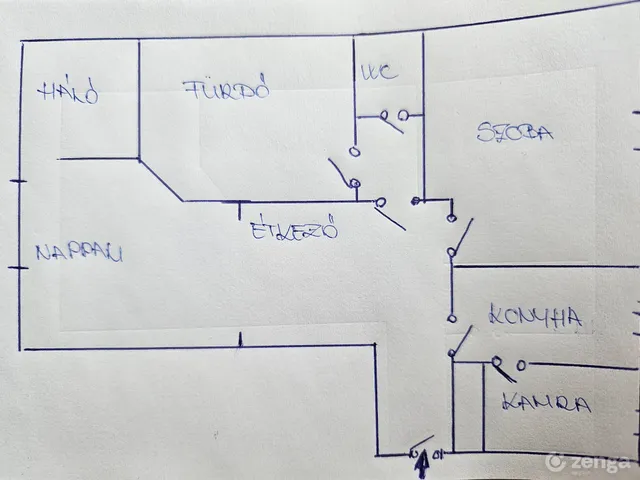 WC
HÁLÓ
FÜRDŐ
SZOBA
ÉTKEZŐ
NAPPALI
KONYHA
KAMRA
zenga